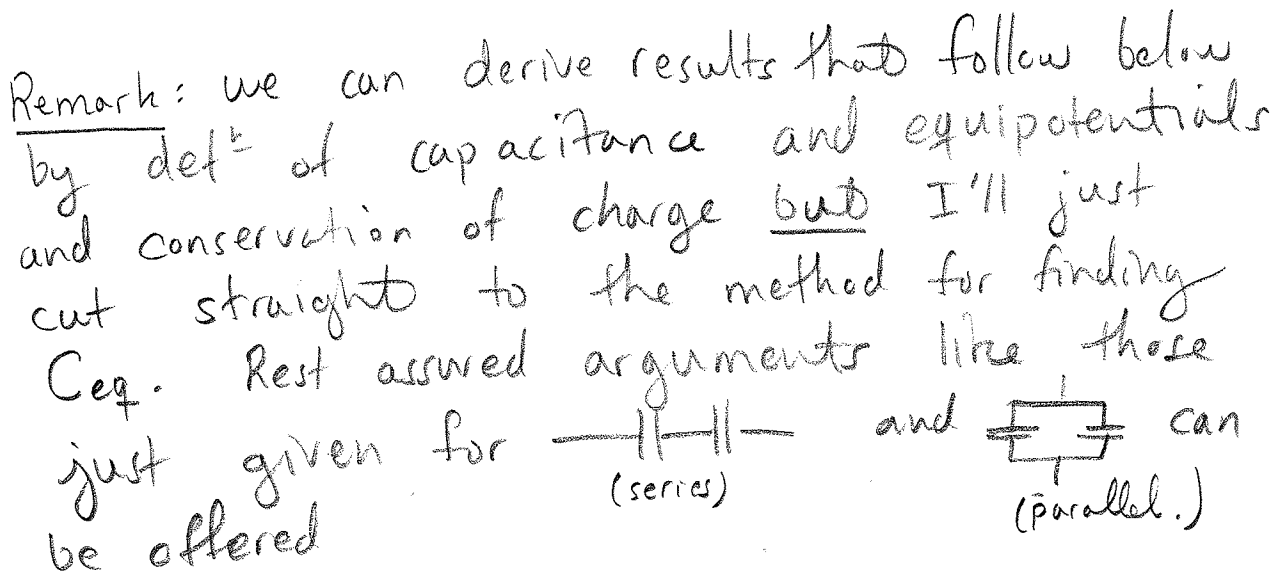 Remark: we can derive results that follow below
by defⁿ of capacitance and equipotentials
and conservation of charge but I'll just
cut straight to the method for finding
Ceq. Rest assured arguments like those
just given for (series) and (parallel.) can
be offered